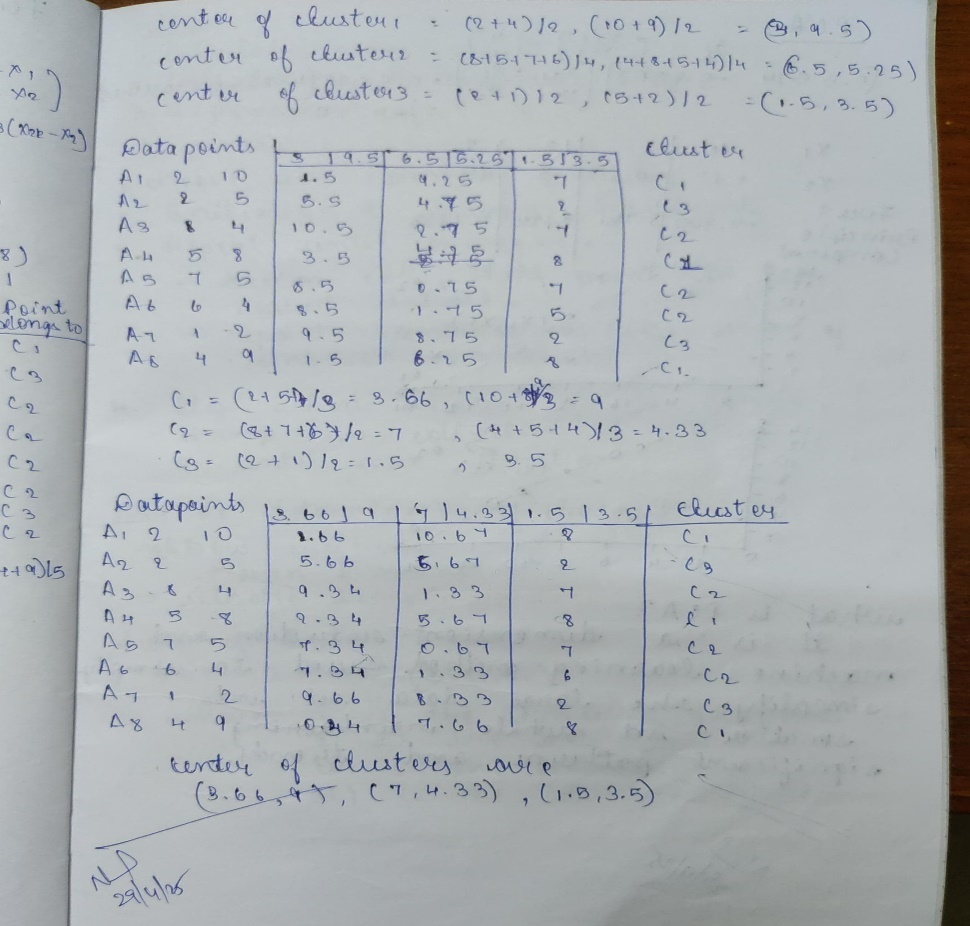 center of cluster1 = (2+4)/2, (10+9)/2 = (3, 9.5)
center of cluster2 = (8+5+7+6)/4, (4+8+5+4)/4 = (6.5, 5.25)
center of cluster3 = (2+1)/2, (5+2)/2 = (1.5, 3.5)
Datapoints 3 | 9.5 | 6.5 | 5.25 | 1.5 | 3.5 cluster
A1 2 10 1.5 9.25 7 C1
A2 2 5 5.5 4.75 2 C3
A3 8 4 10.5 2.75 7 C2
A4 5 8 3.5 4.25 8 C1
A5 7 5 8.5 0.75 7 C2
A6 6 4 8.5 1.75 5 C2
A7 1 2 9.5 8.75 2 C3
A8 4 9 1.5 6.25 8 C1
C1 = (2+5+4)/3 = 3.66, (10+ = 9
C2 = (8+7+6)/2 = 7, (4+5+4)/3 = 4.33
C3 = (2+1)/2 = 1.5, 3.5
Datapoints 3.66 | 9 | 7 | 4.33 | 1.5 | 3.5 | Cluster
A1 2 10 1.66 10.67 8 C1
A2 2 5 5.66 5.67 2 C3
A3 8 4 9.34 1.33 7 C2
A4 5 8 2.34 5.67 8 C1
A5 7 5 7.34 0.67 7 C2
A6 6 4 7.34 1.33 6 C2
A7 1 2 9.66 8.33 2 C3
A8 4 9 0.34 7.66 8 C1
center of clusters are
(3.66, 9), (7, 4.33), (1.5, 3.5)
29/4/25
- x1
x2
(x2k - x2)
8)
1
Point
belongs to
C1
C3
C2
C2
C2
C2
C3
C2
++9)/5